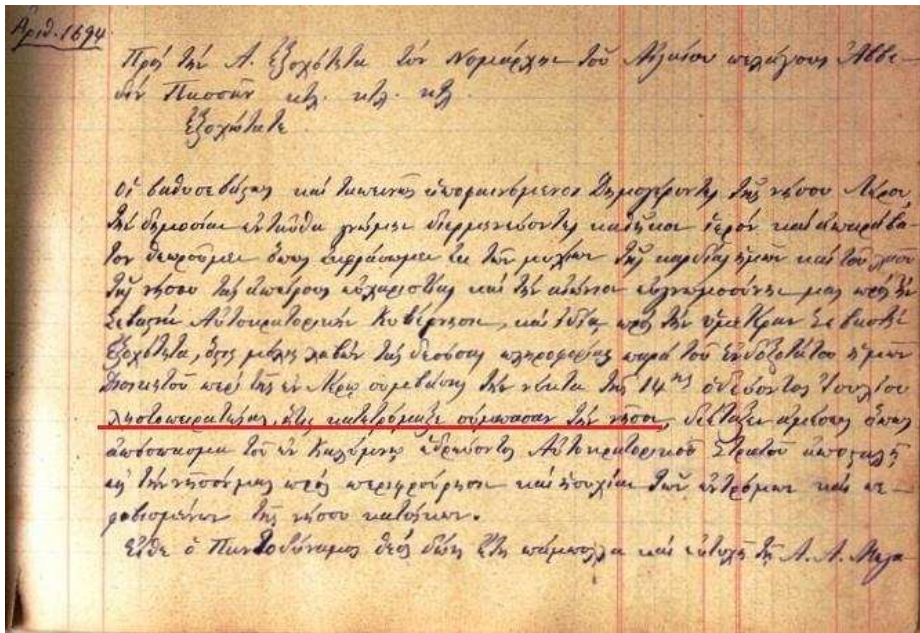 Ἀριθ. 1694.
Πρὸς τὴν Α. Ἐξοχότητα τὸν Νομάρχην τοῦ Αἰγαίου πελάγους Ἀββε-
δὶν Πασσᾶν κτλ. κτλ. κτλ
Ἐξοχώτατε.
Οἱ βαθυσεβάστως καὶ ταπεινῶς ὑποφαινόμενοι Δημογέροντες τῆς νήσου Λέρου,
τὴν δημοσίαν ἐνταῦθα γνώμην διερμηνεύοντες καθῆκον ἱερὸν καὶ ἀπαράβα-
τον θεωροῦμεν ὅπως ἐκφράσωμεν ἐκ τῶν μυχίων τῆς καρδίας ἡμῶν καὶ τοῦ λαοῦ
τῆς νήσου τὰς ἀπείρους εὐχαριστίας καὶ τὴν αἰώνιον εὐγνωμοσύνην μας πρὸς τὴν
Σεβαστὴν Αὐτοκρατορικὴν Κυβέρνησιν, καὶ ἰδίᾳ πρὸς τὴν ὑμετέραν Σεβαστὴν
Ἐξοχότητα, ὅστις μόλις λαβὼν τὰς δεούσας πληροφορίας παρὰ τοῦ ἐνδοξοτάτου ἡμῶν
Διοικητοῦ περὶ τῆς ἐν Λέρῳ συμβάσης τὴν νύκτα τῆς 14ης ὁδεύοντος Ἰουλίου
λῃστοπειρατείας, ἥτις κατετρόμαξε σύμπασαν τὴν νῆσον, διέταξεν ἀμέσως ὅπως
ἀπόσπασμα τοῦ ἐν Καλύμνῳ ἑδρεύοντος Αὐτοκρατορικοῦ Στρατοῦ ἀποσταλῇ
εἰς τὴν νῆσόν μας πρὸς περιφρούρησιν καὶ ἡσυχίαν τῶν ἐντρόμων καὶ πε-
φοβισμένων τῆς νήσου κατοίκων.
Εἴθε ὁ Παντοδύναμος Θεὸς δῴη ἔτη πάμπολλα καὶ εὐτυχῆ τῇ Α. Α. Μεγα